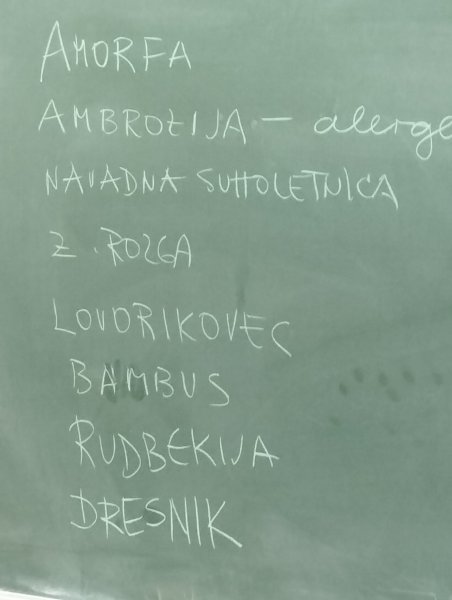 AMORFA
AMBROŽIJA - alerge
NAVADNA SUHOLETNICA
Z. ROZGA
LOVORIKOVEC
BAMBUS
RUDBEKIJA
DRESNIK